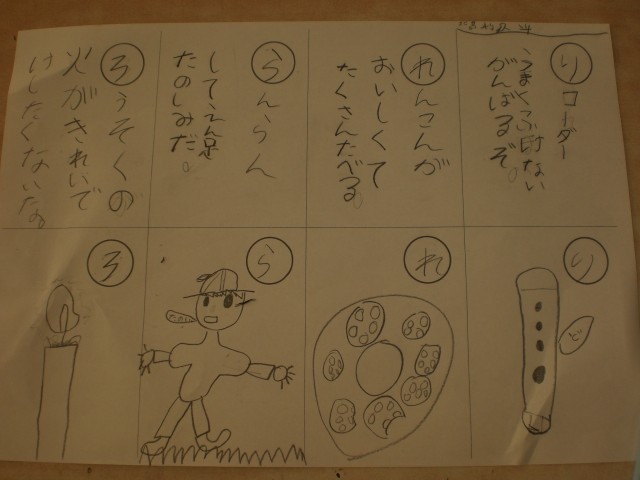 りコーダー
うまくふけない
がんばるぞ。
れんこんが
おいしくて
たくさんたべる。
らんらん
してえん足
たのしみだ。
ろうそくの
火がきれいで
けしたくないな。
り
ど
れ
ら
ろ